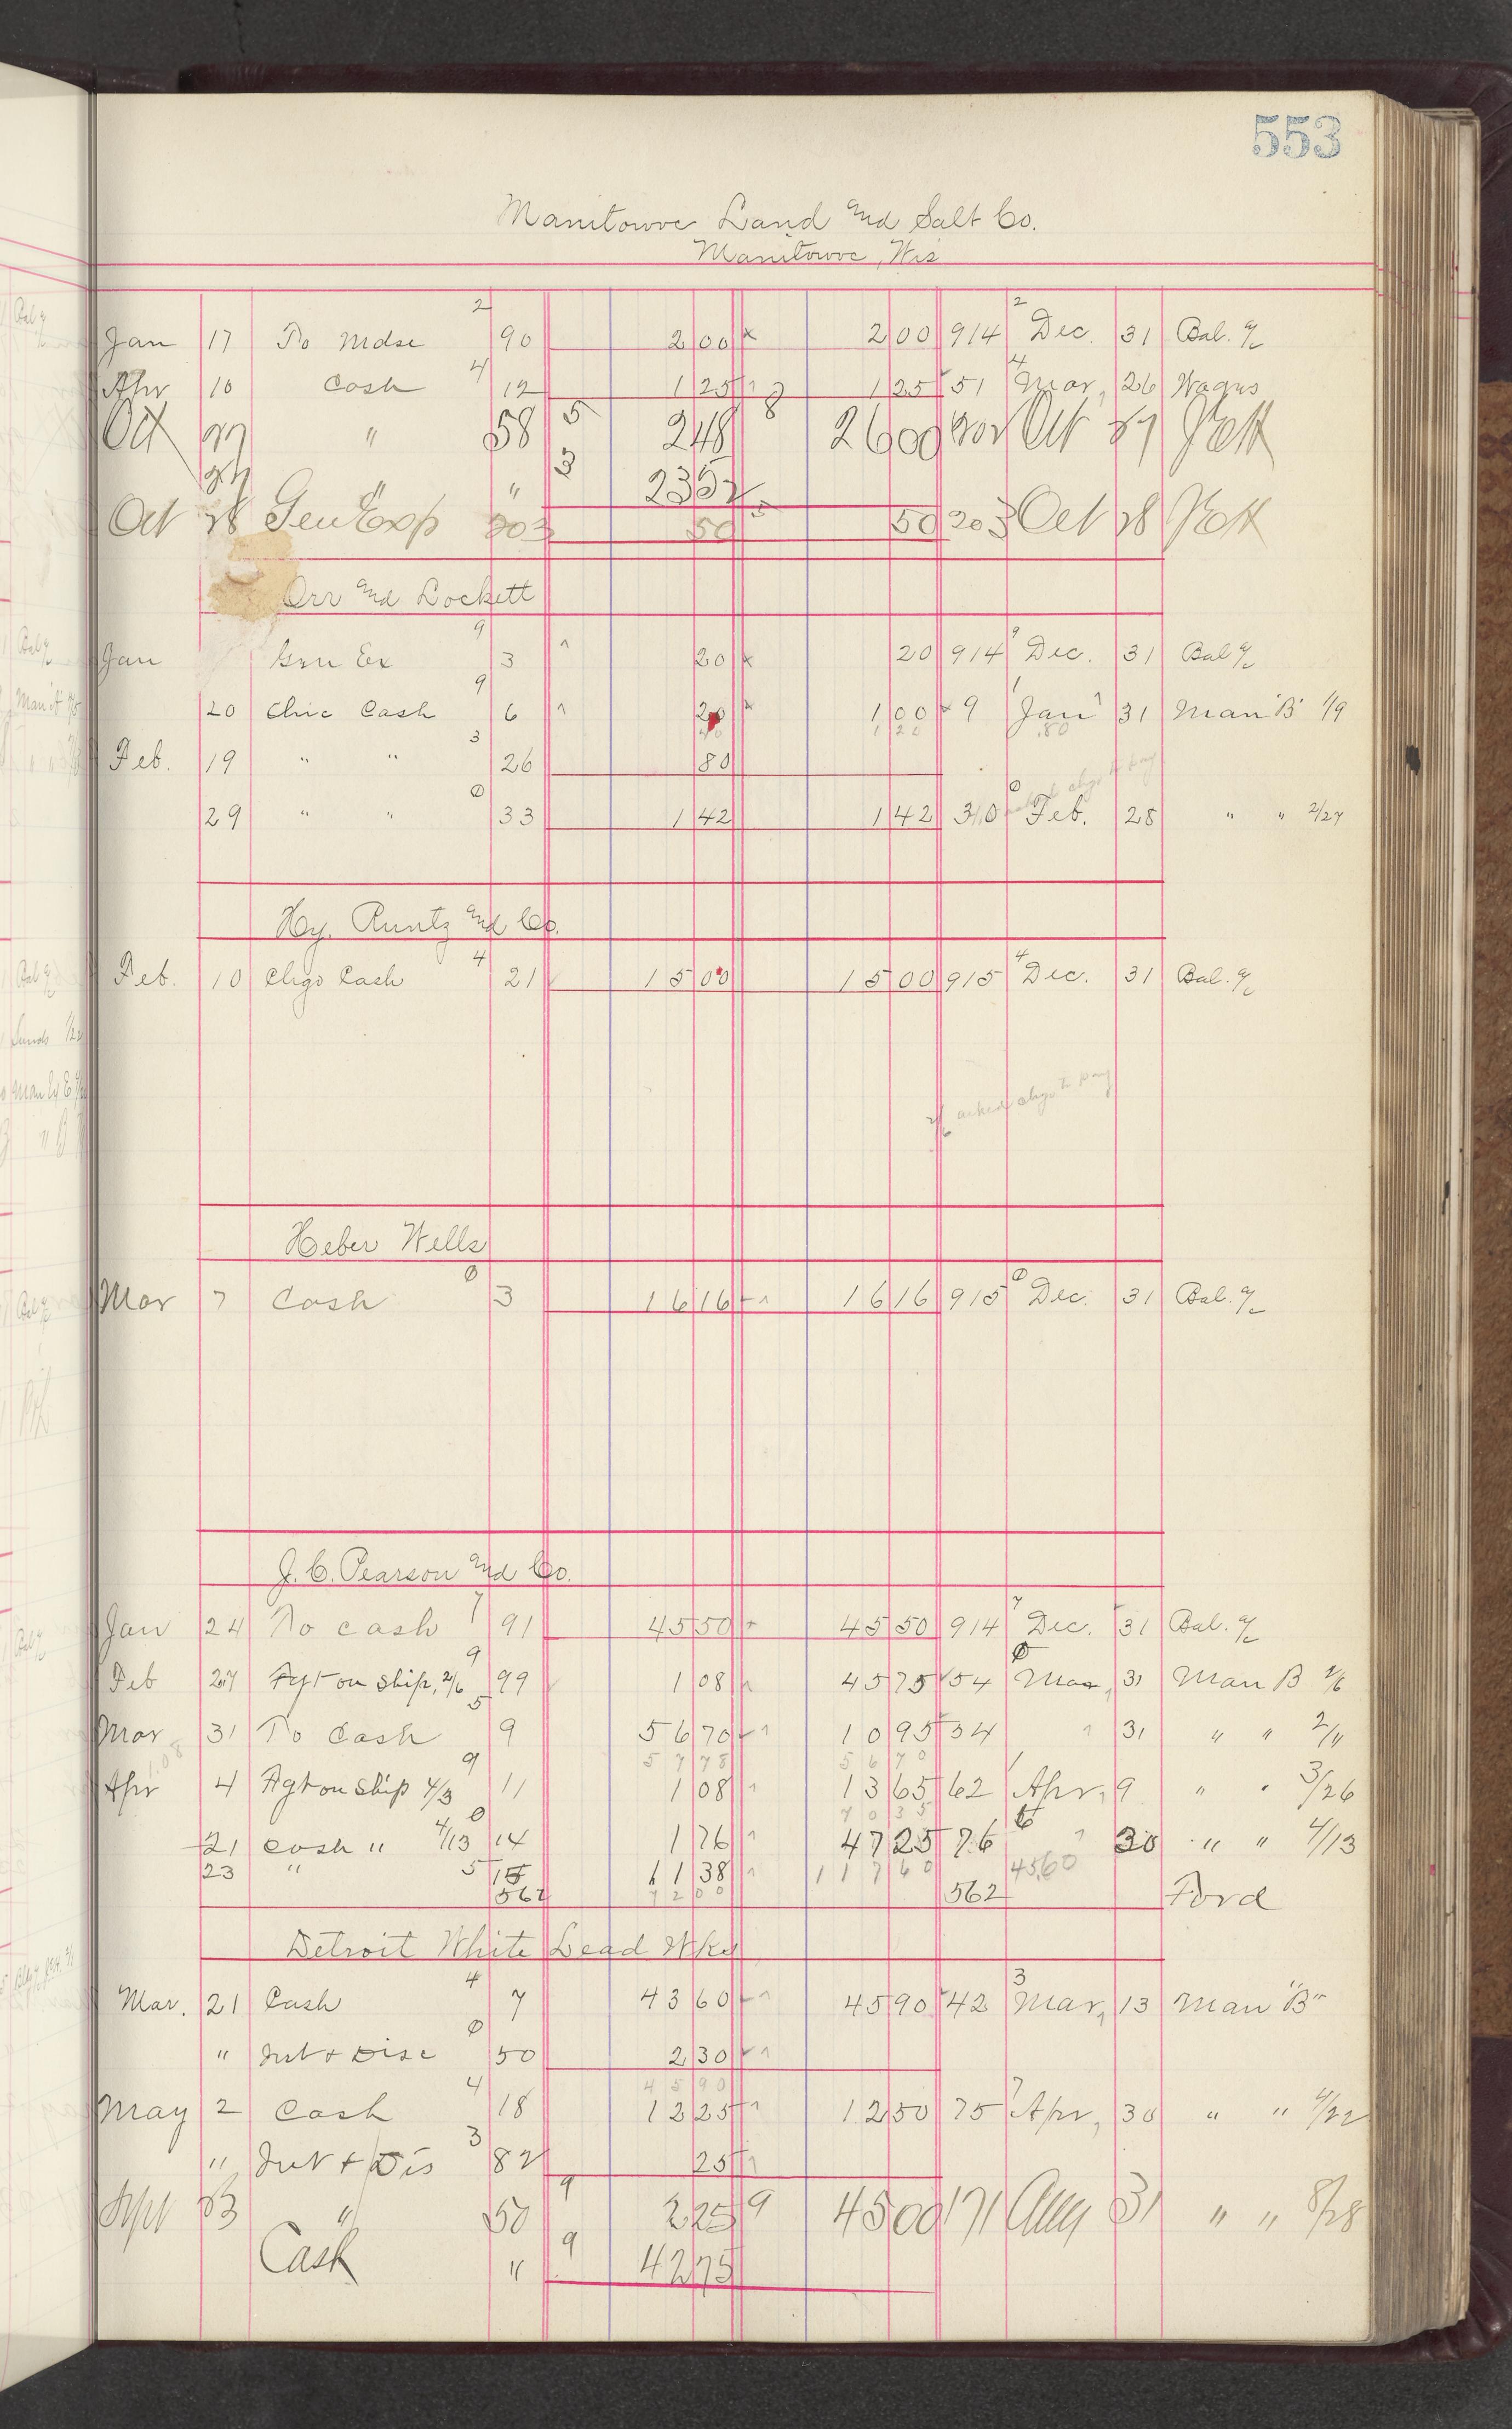 553
Manitowoc Land and Salt Co.
Manitowoc, Wis
2 2
Jan 17 To Mdse 90 2 00 x 2 00 914 Dec. 31 Bal. a/c
4 4
Apr 10 Cash 12 1 25 1 25 51 Mar, 26 Wagus
Oct 27 " 58 5 248 8 2600 202 Oct 27
27 " " 3 2352
Oct 28 Gen Exp 203 50 50 203 Oct 28
Orr and Lockett
9 9
Jan Gen Ex 3 20 x 20 914 Dec. 31 Bal a/c
9 1
20 Chic Cash 6 20 x 1 00 9 Jan 31 Man "B" 1/9
40 1 20 .80
3
Feb. 19 " " 26 80
0 0
29 " " 33 1 42 1 42 310 Feb. 28 " " 2/27
Hy. Runtz and Co.
4 4
Feb. 10 Chgo Cash 21 15 00 15 00 915 Dec. 31 Bal. a/c
chgo to pay
Heber Wells
0 0
Mar 7 Cash 3 16 16 16 16 915 Dec. 31 Bal. a/c
J. C. Pearson and Co.
7 7
Jan 24 To Cash 91 45 50 45 50 914 Dec. 31 Bal. a/c
9 0
Feb 27 Fgt on Ship, 2/6 99 1 08 45 75 54 Mar, 31 Man B 2/6
5
Mar 31 To Cash 9 56 70 10 95 34 31 " " 2/11
57 78 56 70
1.08
9 1
Apr 4 Fgt on Ship 4/3 11 1 08 13 65 62 Apr, 9 " " 3/26
70 35
0 6
21 Cash " 4/13 14 1 76 47 25 76 30 " " 4/13
23 " 5 15 11 38 117 60 45.60
562 72 00 562 Ford
Detroit White Lead Wks
4 3
Mar. 21 Cash 7 43 60 45 90 42 Mar, 13 Man "B"
0
" Int + Disc 50 2 30
45 90
4 7
May 2 Cash 18 12 25 12 50 75 Apr, 30 " " 4/22
3
" Int + Dis 82 25
Sept 23 " 50 9 225 9 4500 171 Aug 31 " " 8/28
Cash " 9 4275